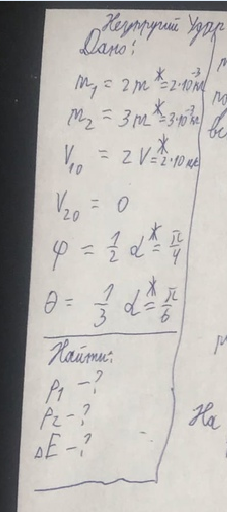 Неупругий Удар
Дано:
m₁ = 2m *= 2·10⁻³ кг
m₂ = 3m *= 3·10⁻³ кг
V₁₀ = 2V *= 2·10 м/с
V₂₀ = 0
φ = 1/2 α *= π/4
θ = 1/3 α *= π/6
Найти:
p₁ -?
p₂ -?
ΔE -?
На